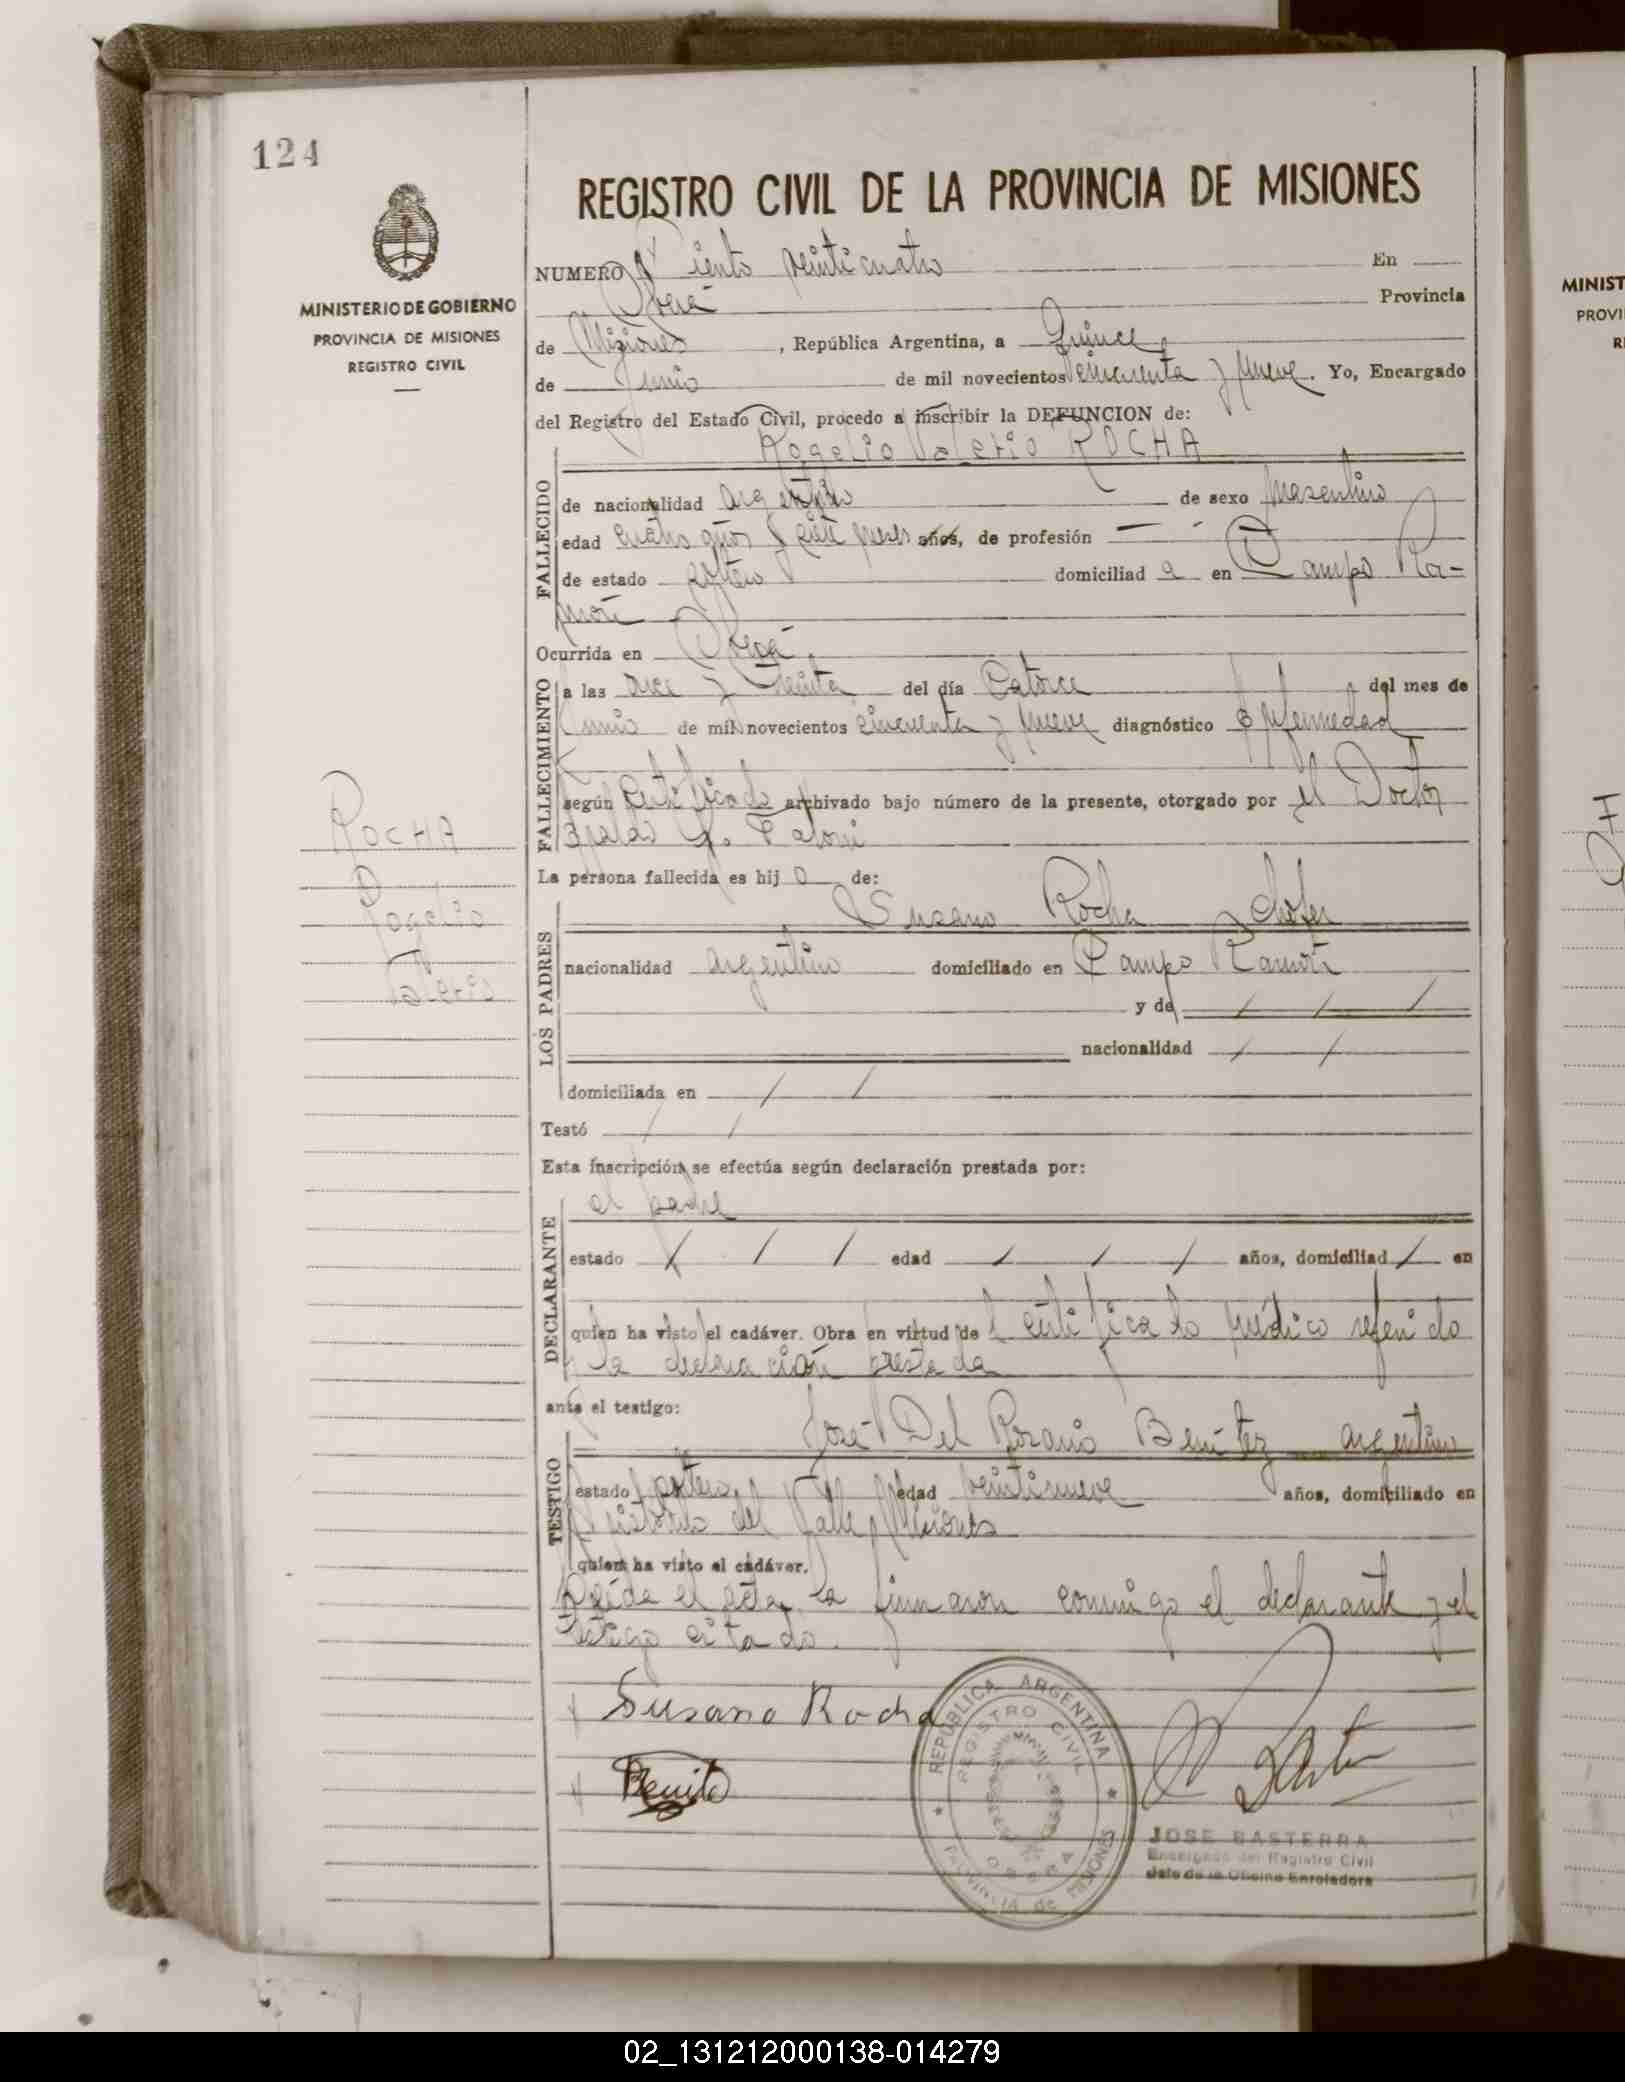 124
MINISTERIO DE GOBIERNO
PROVINCIA DE MISIONES
REGISTRO CIVIL
REGISTRO CIVIL DE LA PROVINCIA DE MISIONES
NUMERO Ciento veinticuatro En
Oberá Provincia
de Misiones, República Argentina, a Quince
de Junio de mil novecientos cincuenta y nueve. Yo, Encargado
del Registro del Estado Civil, procedo a inscribir la DEFUNCION de:
Rogelio Valerio ROCHA
FALLECIDO
de nacionalidad argentino de sexo masculino
edad cuatro años y siete meses años, de profesión
de estado soltero domiciliad o en Campo Ra-
món
Ocurrida en Oberá.
FALLECIMIENTO
a las once y Treinta del día Catorce del mes de
Junio de mil novecientos cincuenta y nueve diagnóstico Enfermedad
según Certificado archivado bajo número de la presente, otorgado por el Doctor
ROCHA
Rogelio
Valerio
La persona fallecida es hij o de:
LOS PADRES
Susano Rocha chofer
nacionalidad argentino domiciliado en Campo Ramón
y de / / /
nacionalidad / /
domiciliada en / /
Testó / /
Esta inscripción se efectúa según declaración prestada por:
el padre
DECLARANTE
estado / / / edad / / / años, domiciliad / en
quien ha visto el cadáver. Obra en virtud de l certificado médico referido
y la declaración prestada
ante el testigo:
José Del Rosario Benitez argentino
TESTIGO
estado soltero, edad veintinueve años, domiciliado en
Aristóbulo del Valle, Misiones
quien ha visto el cadáver.
Leída el acta, la firmaron conmigo el declarante y el
testigo citado.
Susano Rocha
Benito
REPUBLICA ARGENTINA
REGISTRO CIVIL
OBERA
PROVINCIA de MISIONES
JOSE BASTERRA
Encargado del Registro Civil
Jefe de la Oficina Enroladora
MINIST
PROVI
R
02_131212000138-014279